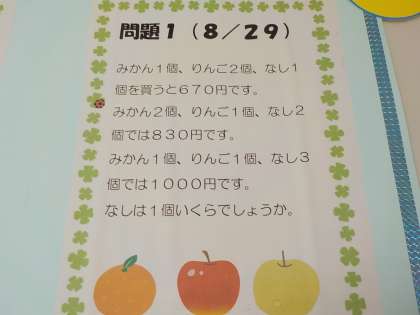 問題１（８／２９）
みかん１個、りんご２個、なし１
個を買うと６７０円です。
みかん２個、りんご１個、なし２
個では８３０円です。
みかん１個、りんご１個、なし３
個では１０００円です。
なしは１個いくらでしょうか。